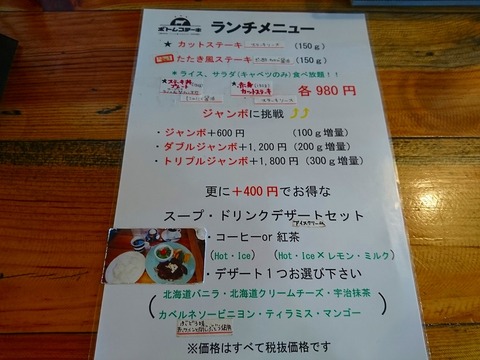 ボトムステーキ
ランチメニュー
★ カットステーキ (150g)
たたき風ステーキ (150g)
＊ライス、サラダ(キャベツのみ)食べ放題！！
★ステーキ丼
★赤身
カットステーキ
各980円
ジャンボに挑戦
・ジャンボ＋600円 (100g増量)
・ダブルジャンボ＋1,200円 (200g増量)
・トリプルジャンボ＋1,800円 (300g増量)
更に＋400円でお得な
スープ・ドリンクデザートセット
アイスクリーム
・コーヒーor 紅茶
(Hot・Ice) (Hot・Ice×レモン・ミルク)
・デザート１つお選び下さい
北海道バニラ・北海道クリームチーズ・宇治抹茶
カベルネソービニヨン・ティラミス・マンゴー
※価格はすべて税抜価格です